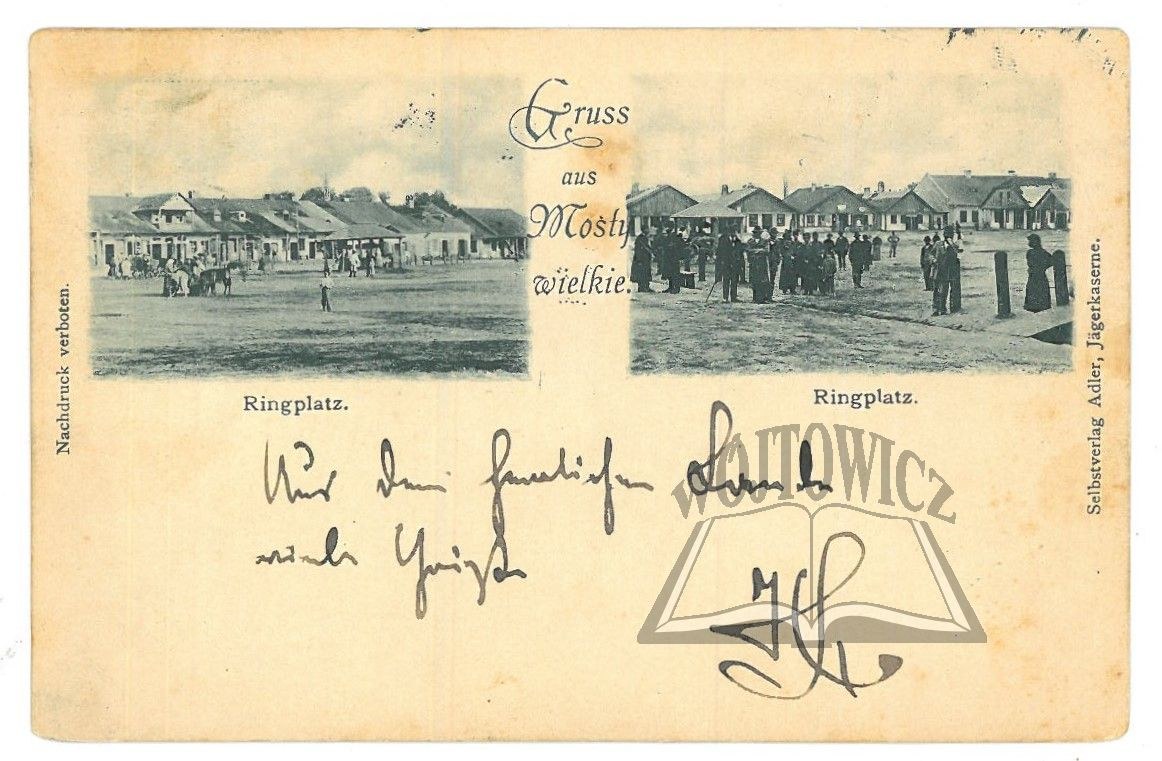 Gruss
aus
Mosty
wielkie.
Nachdruck verboten.
Ringplatz.
Ringplatz.
Selbstverlag Adler, Jägerkaserne.
Aus dem herrlichen Lande
viele Grüße
WÓJTOWICZ